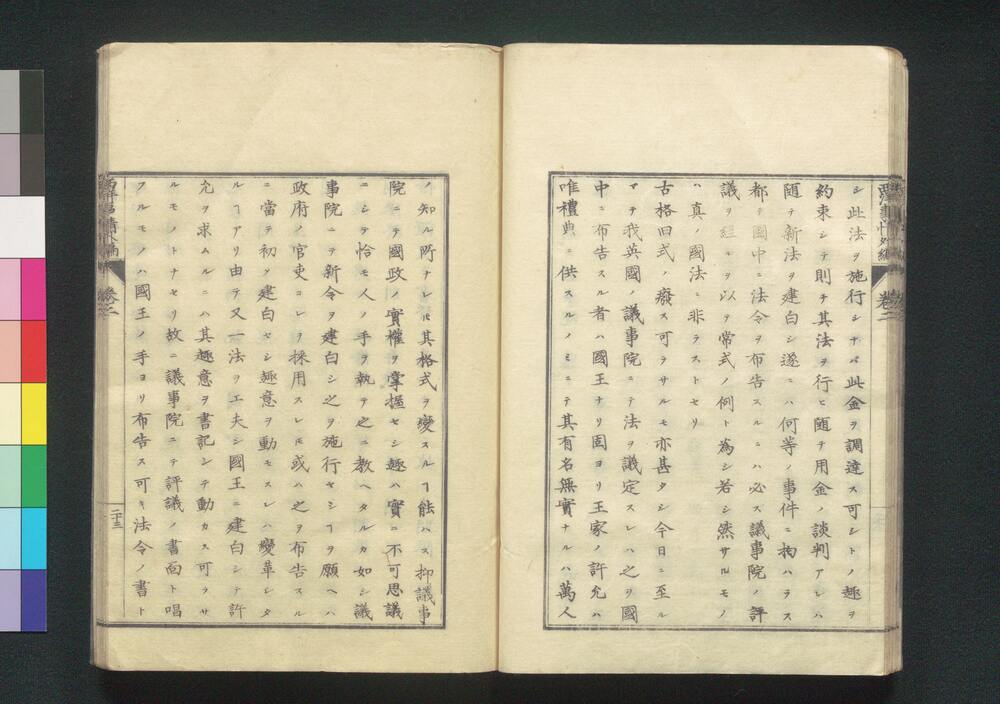 シ此法ヲ施行シナバ此金ヲ調達ス可シトノ趣ヲ
約束シテ則チ其法ヲ行ヒ随テ用金ノ談判アレハ
随テ新法ヲ建白シ遂ニハ何等ノ事件ニ拘ハラス
都テ國中ニ法令ヲ布告スルニハ必ス議事院ノ評
議ヲ経ルヲ以テ常式ノ例ト為シ若シ然サルモノ
ハ真ノ國法ニ非ラストセリ
古格旧式ノ癈ス可ラサルモ亦甚タシ今日ニ至ル
マテ我英國ノ議事院ニテ法ヲ議定スレハ之ヲ國
中ニ布告スル者ハ國王ナリ固ヨリ王家ノ許允ハ
唯禮典ニ供スルノミニテ其有名無實ナルハ萬人
西洋事情外編
巻二
ノ知ル所ナレ𪜈其格式ヲ變スルヿ能ハス抑議事
院ニテ國政ノ實權ヲ掌握セシ趣ハ實ニ不可思議
ニシテ恰モ人ノ手ヲ執テ之ニ教ヘタルカ如シ議
事院ニテ新令ヲ建白シ之ヲ施行セシヿヲ願ヘハ
政府ノ官吏コレヲ採用スレ𪜈或ハ之ヲ布告スル
ニ當テ初メ建白セシ趣意ヲ動モスレハ變革シタ
ルヿアリ由テ又一法ヲ工夫シ國王ニ建白シテ許
允ヲ求ムルニハ其趣意ヲ書記シテ動カス可ラサ
ルモノトナセリ故ニ議事院ニテ評議ノ書面ト唱
フルモノハ國王ノ手ヨリ布告ス可キ法令ノ書ト
西洋事情外編
巻二
二十三